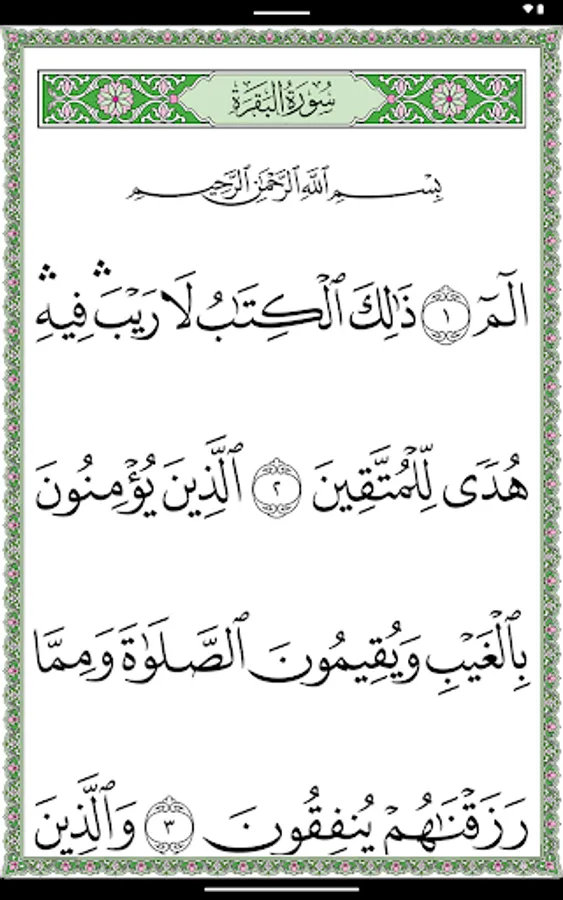 سُورَةُ الْبَقَرَةِ
بِسْمِ ٱللَّهِ ٱلرَّحْمَٰنِ ٱلرَّحِيمِ
الٓمٓ ١ ذَٰلِكَ ٱلْكِتَٰبُ لَا رَيْبَ ۛ فِيهِ ۛ
هُدًى لِّلْمُتَّقِينَ ٢ ٱلَّذِينَ يُؤْمِنُونَ
بِٱلْغَيْبِ وَيُقِيمُونَ ٱلصَّلَوٰةَ وَمِمَّا
رَزَقْنَٰهُمْ يُنفِقُونَ ٣ وَٱلَّذِينَ